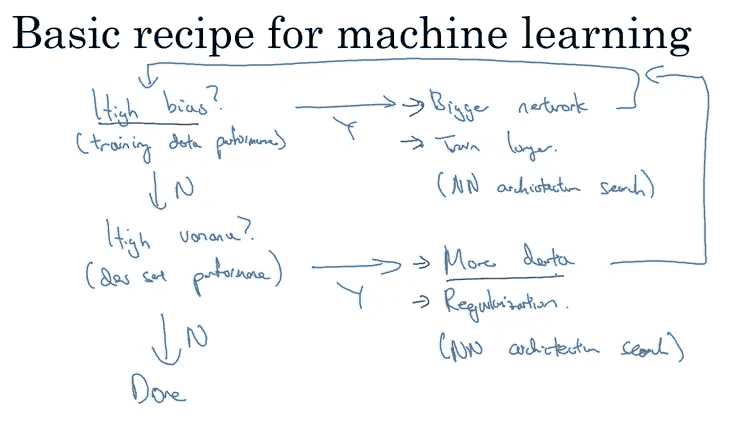 Basic recipe for machine learning
High bias? Y → Bigger network
(training data performance) → Train longer.
N (NN architecture search)
High variance?
(dev set performance) Y → More data
→ Regularization.
N (NN architecture search)
Done